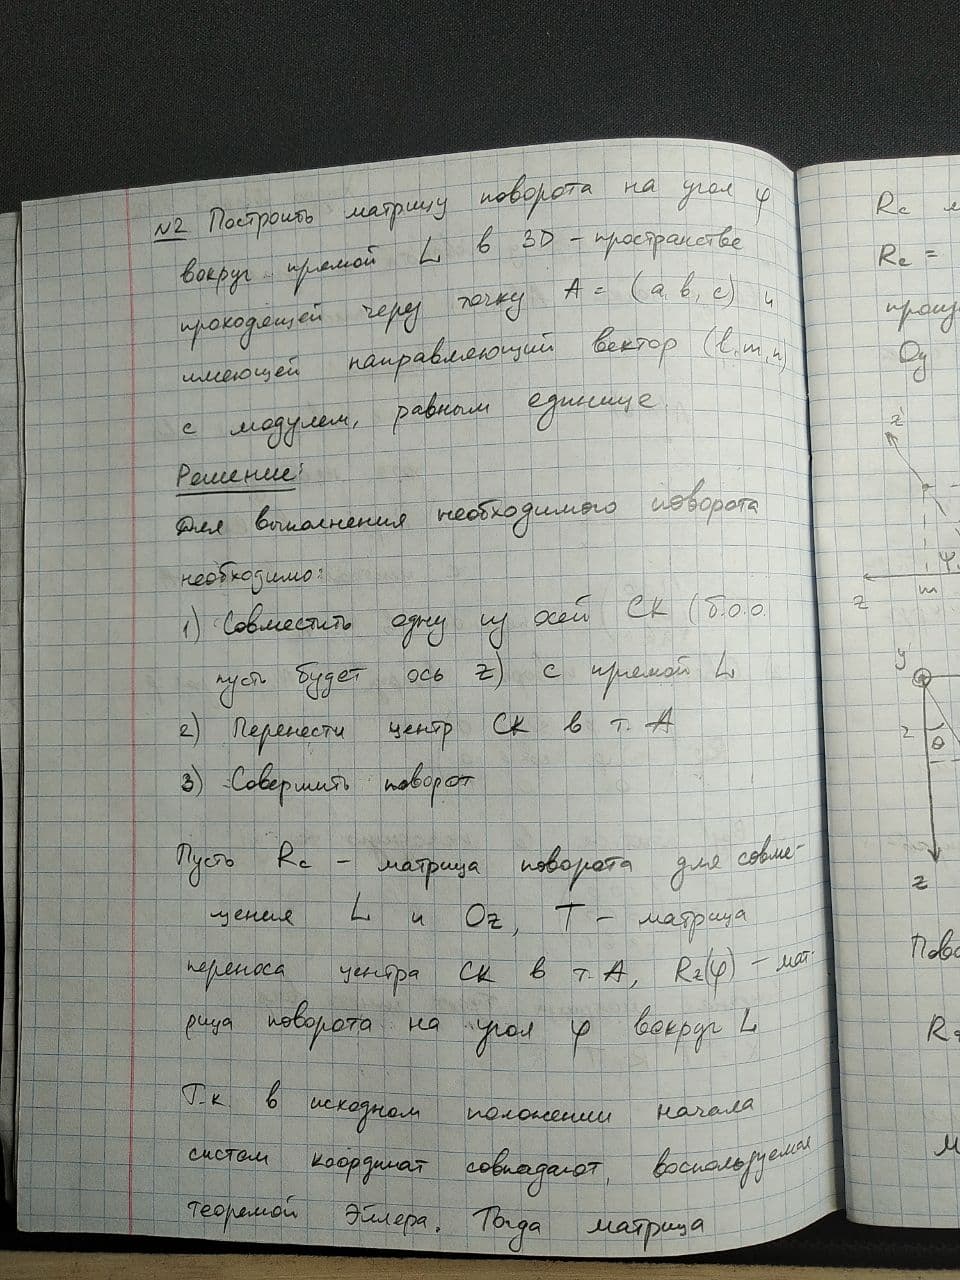 №2 Построить матрицу поворота на угол φ
вокруг прямой L в 3D - пространстве
проходящей через точку A = (a, b, c) и
имеющей направляющий вектор (l, m, n)
с модулем, равным единице.
Решение:
Для выполнения необходимого поворота
необходимо:
1) Совместить одну из осей СК (б.о.о.
пусть будет ось z) с прямой L
2) Перенести центр СК в т. A
3) Совершить поворот
Пусть Rc - матрица поворота для совме-
щения L и Oz, T - матрица
переноса центра СК в т. A, Rz(φ) - мат-
рица поворота на угол φ вокруг L
Т.к. в исходном положении начала
систем координат совпадают, воспользуемся
теоремой Эйлера. Тогда матрица
Rc
Rc =
Oy
z
m
z
y
z
θ
z